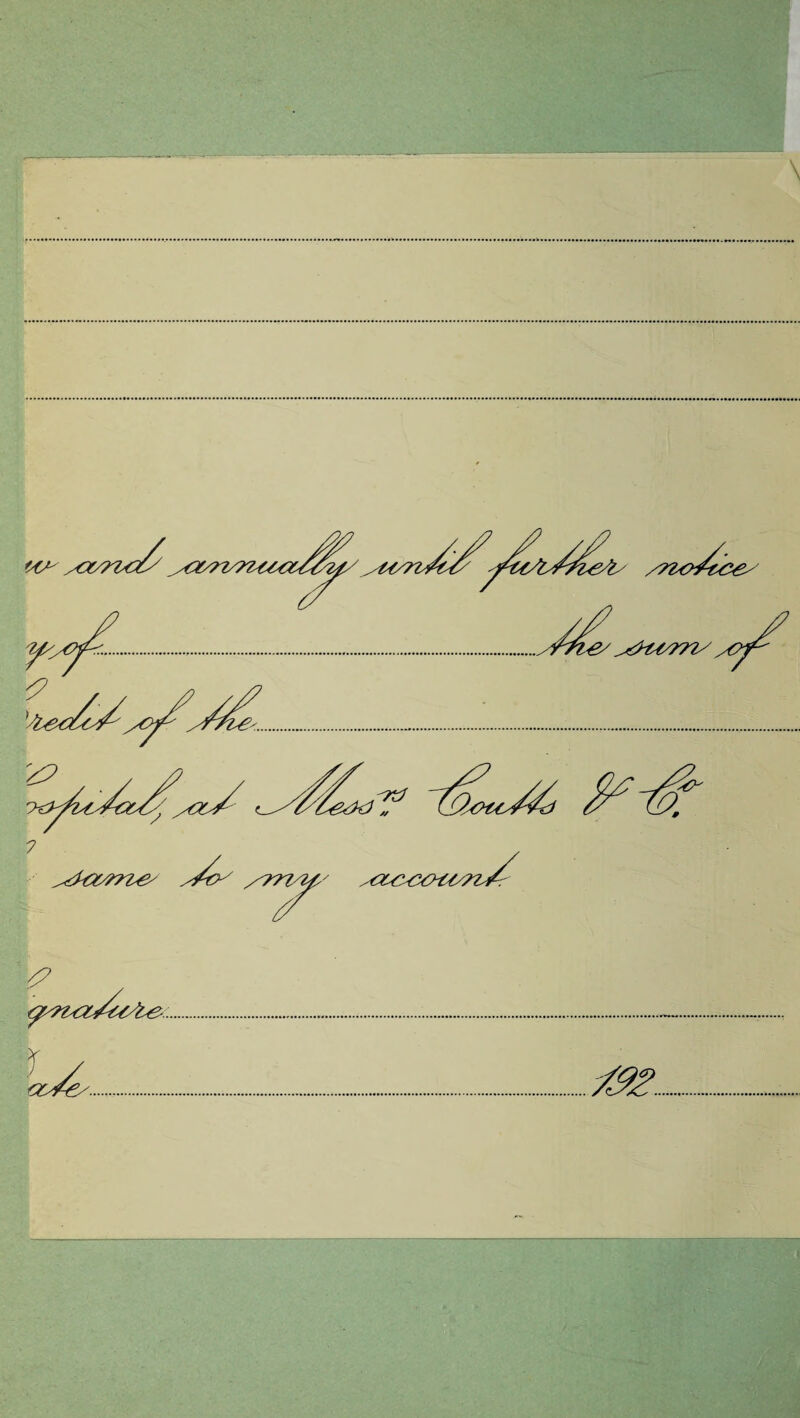 w and annually until further notice
y of the sum of
redit of the
ospital, at Messrs Coutts & Co.
same to my account
gnature
ate 192